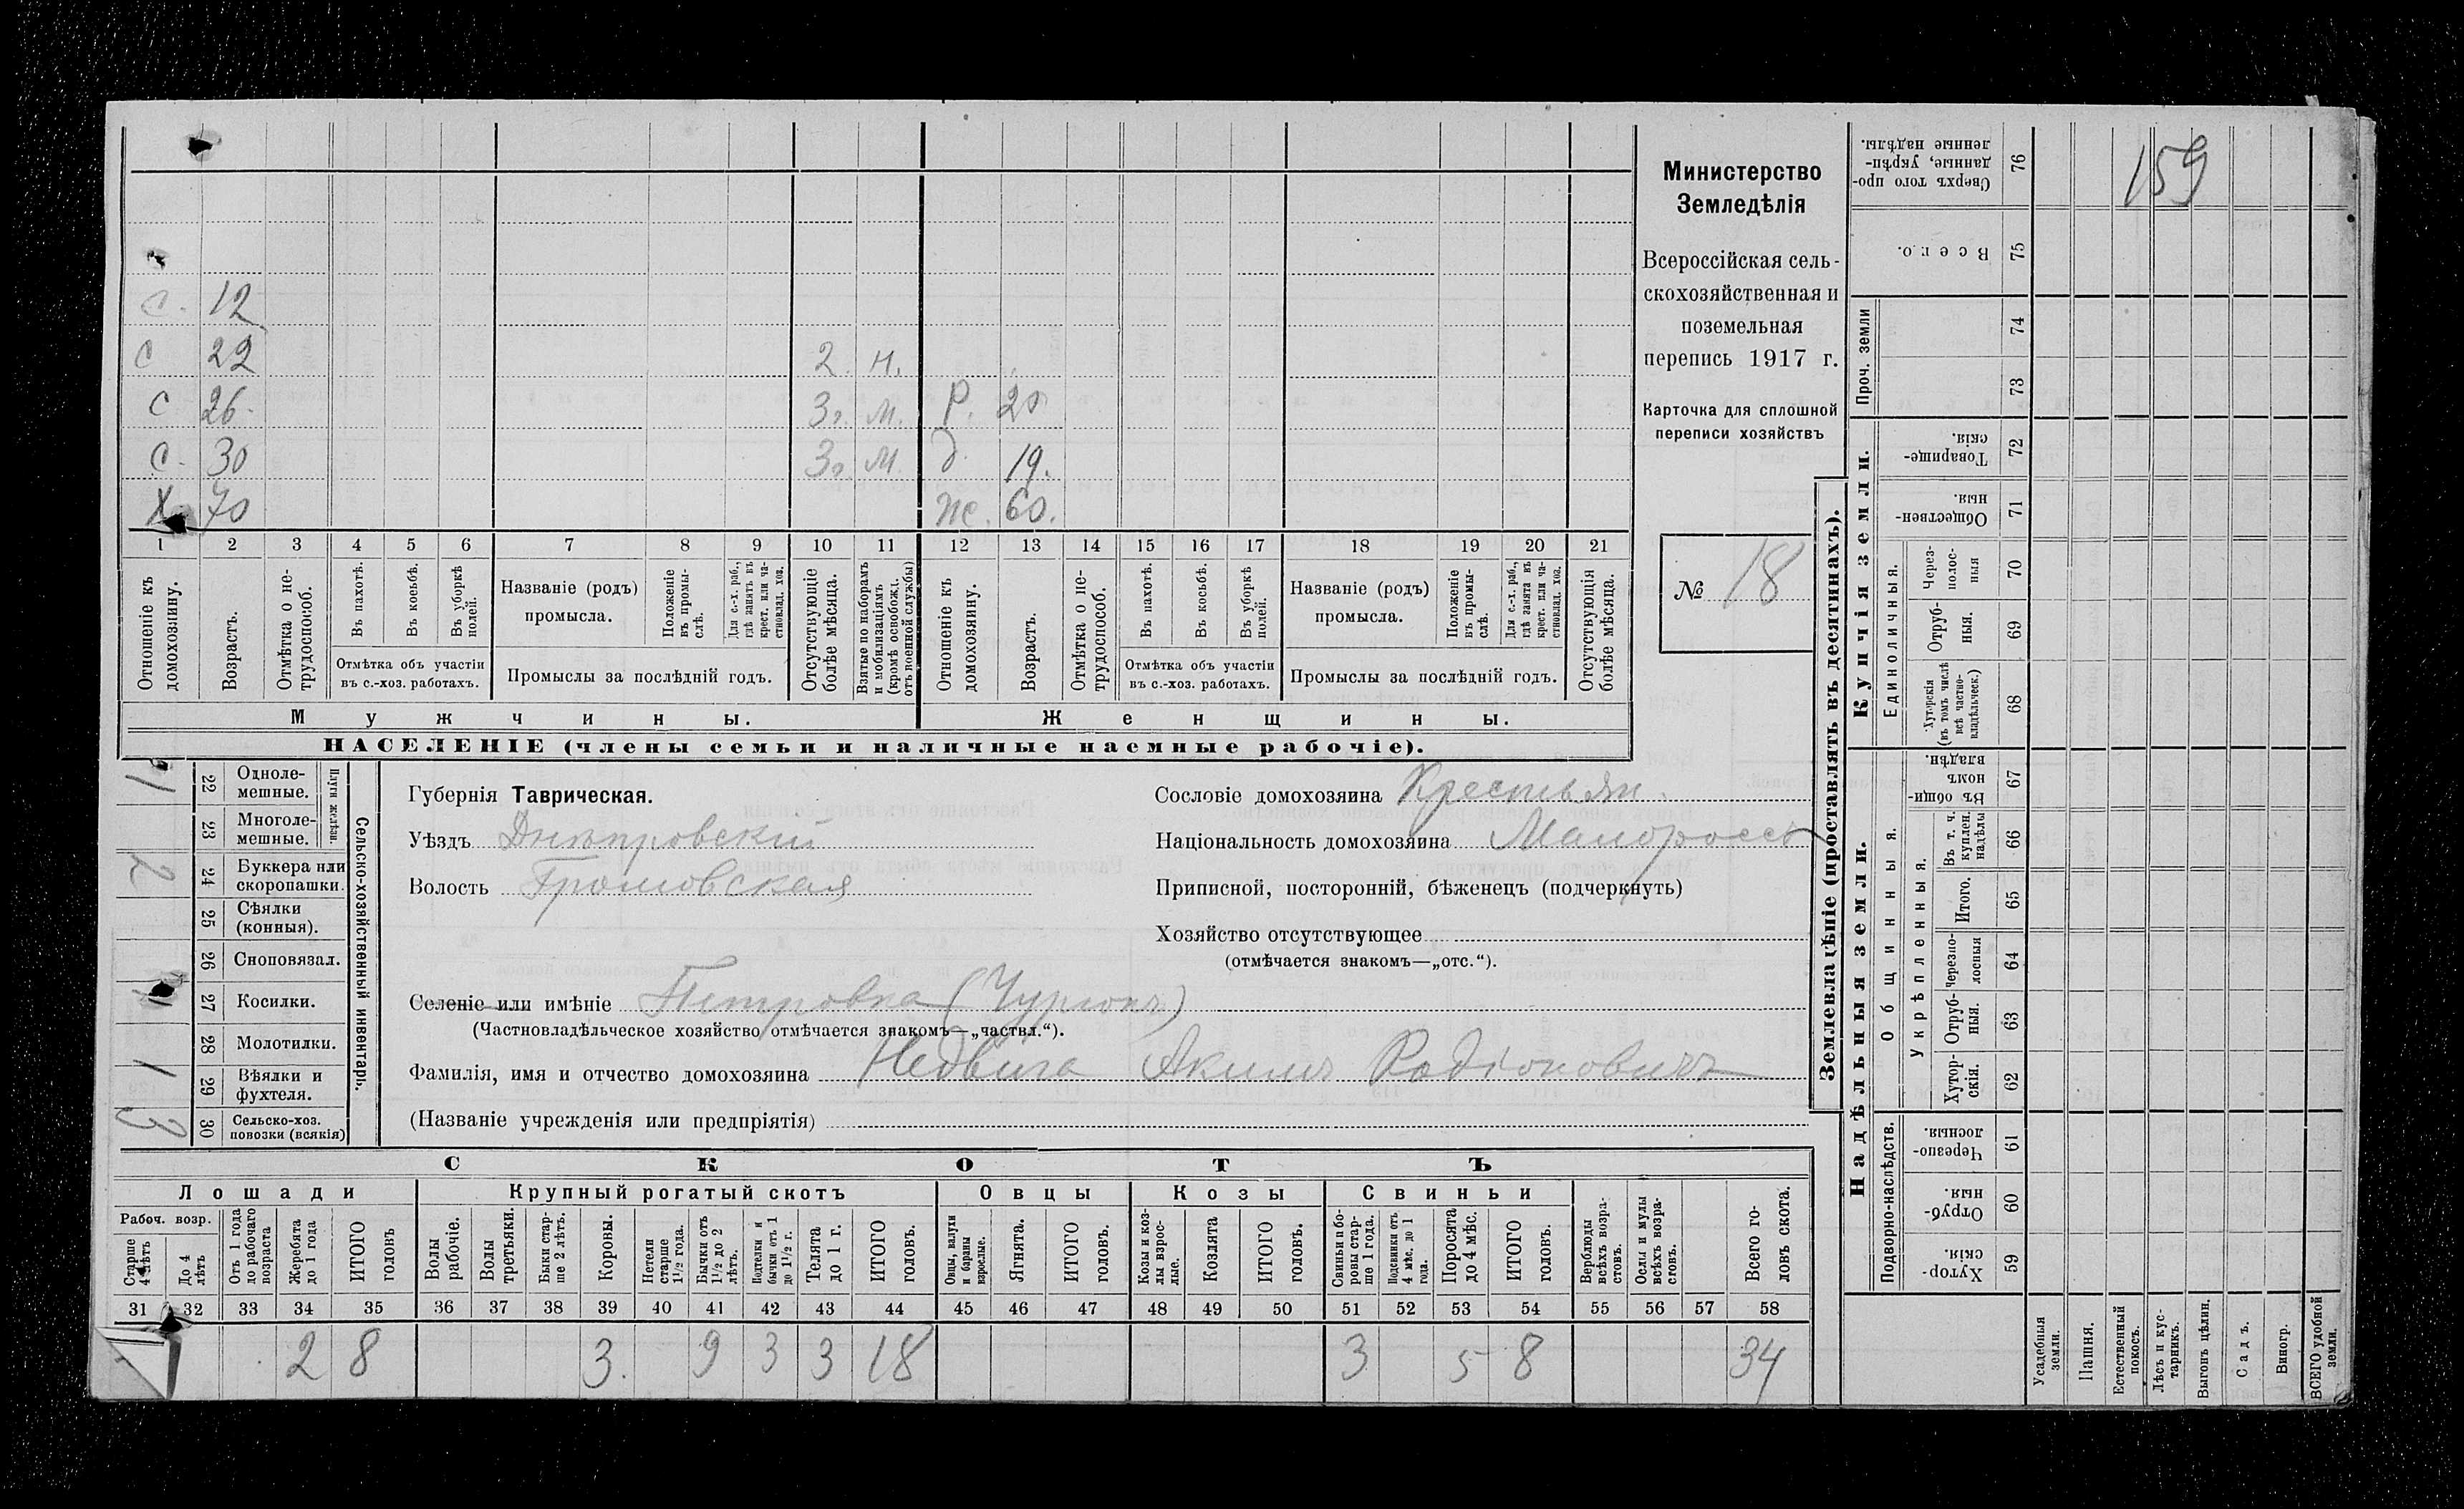 159
Министерство
Земледѣлія
Всероссійская сель-
скохозяйственная и
поземельная
перепись 1917 г.
Карточка для сплошной
переписи хозяйствъ
№ 18
С. 12
С 22 2 м.
С 26. 3г. м. Р. 20
С. 30 3г. м. д. 19.
Х. 70 Ж. 60.
1 2 3 4 5 6 7 8 9 10 11 12 13 14 15 16 17 18 19 20 21
Отношеніе къ домохозяину.
Возрастъ.
Отмѣтка о не-трудоспособ.
Въ пахотѣ.
Въ косьбѣ.
Въ уборкѣ полей.
Отмѣтка объ участіи
въ с.-хоз. работахъ.
Названіе (родъ)
промысла.
Положеніе въ промы-слѣ.
Для с.-х. раб., гдѣ занятъ въ крест. или ча-стновлад. хоз.
Промыслы за послѣдній годъ.
Отсутствующіе болѣе мѣсяца.
Взятые по наборамъ и мобилизаціямъ (кромѣ освобожд. отъ военной службы)
Отношеніе къ домохозяину.
Возрастъ.
Отмѣтка о не-трудоспособ.
Въ пахотѣ.
Въ косьбѣ.
Въ уборкѣ полей.
Отмѣтка объ участіи
въ с.-хоз. работахъ.
Названіе (родъ)
промысла.
Положеніе въ промы-слѣ.
Для с.-х. раб., гдѣ занята въ крест. или ча-стновлад. хоз.
Промыслы за послѣдній годъ.
Отсутствующія болѣе мѣсяца.
Мужчины. Женщины.
НАСЕЛЕНІЕ (члены семьи и наличные наемные рабочіе).
Сельско-хозяйственный инвентарь.
Плуги желѣзн.
1 22 Одноле-мешные.
23 Многоле-мешные.
2 24 Буккера или скоропашки.
25 Сѣялки (конныя).
26 Сноповязал.
27 Косилки.
28 Молотилки.
1 29 Вѣялки и фухтеля.
3 30 Сельско-хоз. повозки (всякія)
Губернія Таврическая.
Уѣздъ Днѣпровскій
Волость Громовская
Селеніе или имѣніе Петровка (Чурюкъ)
(Частновладѣльческое хозяйство отмѣчается знакомъ—„частвл.“).
Фамилія, имя и отчество домохозяина Недвига Акимъ Родіоновичъ
(Названіе учрежденія или предпріятія)
Сословіе домохозяина Крестьян.
Національность домохозяина Малороссъ
Приписной, посторонній, бѣженецъ (подчеркнуть)
Хозяйство отсутствующее
(отмѣчается знакомъ—„отс.“).
СКОТЪ
Лошади Крупный рогатый скотъ Овцы Козы Свиньи
Рабоч. возр.
Старше 4 лѣтъ
До 4 лѣтъ
Отъ 1 года до рабочаго возраста
Жеребята до 1 года
ИТОГО головъ
Волы рабочіе.
Волы третьяки.
Быки стар-ше 2 лѣтъ.
Коровы.
Нетели старше 1½ года.
Бычки отъ 1½ до 2 лѣтъ.
Подтелки и бычки отъ 1 до 1½ г.
Телята до 1 г.
ИТОГО головъ.
Овцы, валухи и бараны взрослые.
Ягнята.
ИТОГО головъ.
Козы и коз-лы взрос-лые.
Козлята
ИТОГО головъ.
Свиньи и бо-ровы стар-ше 1 года.
Подсвинки отъ 4 мѣс. до 1 года.
Поросята до 4 мѣс.
ИТОГО головъ.
Верблюды всѣхъ возра-стовъ.
Ослы и мулы всѣхъ возра-стовъ.
Всего го-ловъ скота.
31 32 33 34 35 36 37 38 39 40 41 42 43 44 45 46 47 48 49 50 51 52 53 54 55 56 57 58
2 8 3. 9 3 3 18 3 5 8 34
Землевладѣніе (проставлять въ десятинахъ).
Надѣльныя земли. Купчія земли. Проч. земли
Подворно-наслѣдств.
Общинныя.
Укрѣпленныя.
Единоличныя.
59 Хутор-скія.
60 Отруб-ныя.
61 Черезпо-лосныя.
62 Хутор-скія.
63 Отруб-ныя.
64 Черезпо-лосныя
65 Итого.
66 Въ т. ч. куплен. надѣлы
67 Въ общи-номъ владѣн.
68 Хуторскія (въ томъ числѣ всѣ частно-владѣльческ.)
69 Отруб-ныя.
70 Через-полос-ныя
71 Обществен-ныя.
72 Товарище-скія.
73
74
75 Всего.
76 Сверхъ того про-данные, укрѣп-ленные надѣлы.
Усадебныя земли.
Пашня.
Естественный покосъ.
Лѣсъ и кус-тарникъ.
Выгонъ цѣлин.
Садъ.
Виногр.
ВСЕГО удобной земли.